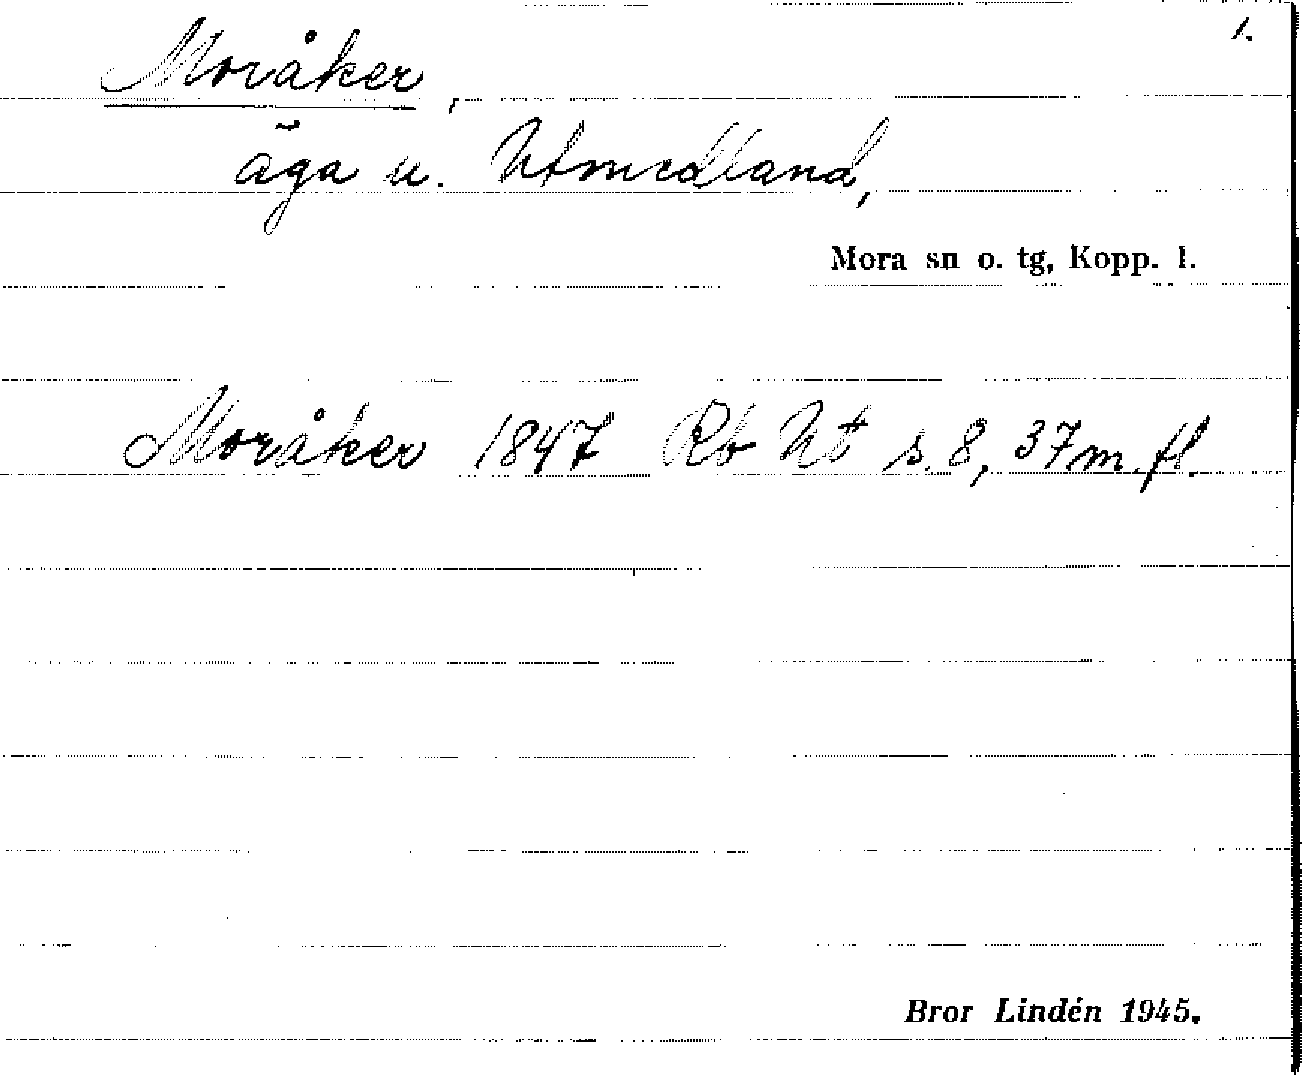 1.
Moråker,
äga u. Utmedland,
Mora sn o. tg, Kopp. l.
Moråker 1847 Rb Ut s. 8, 37 m. fl.
Bror Lindén 1945.